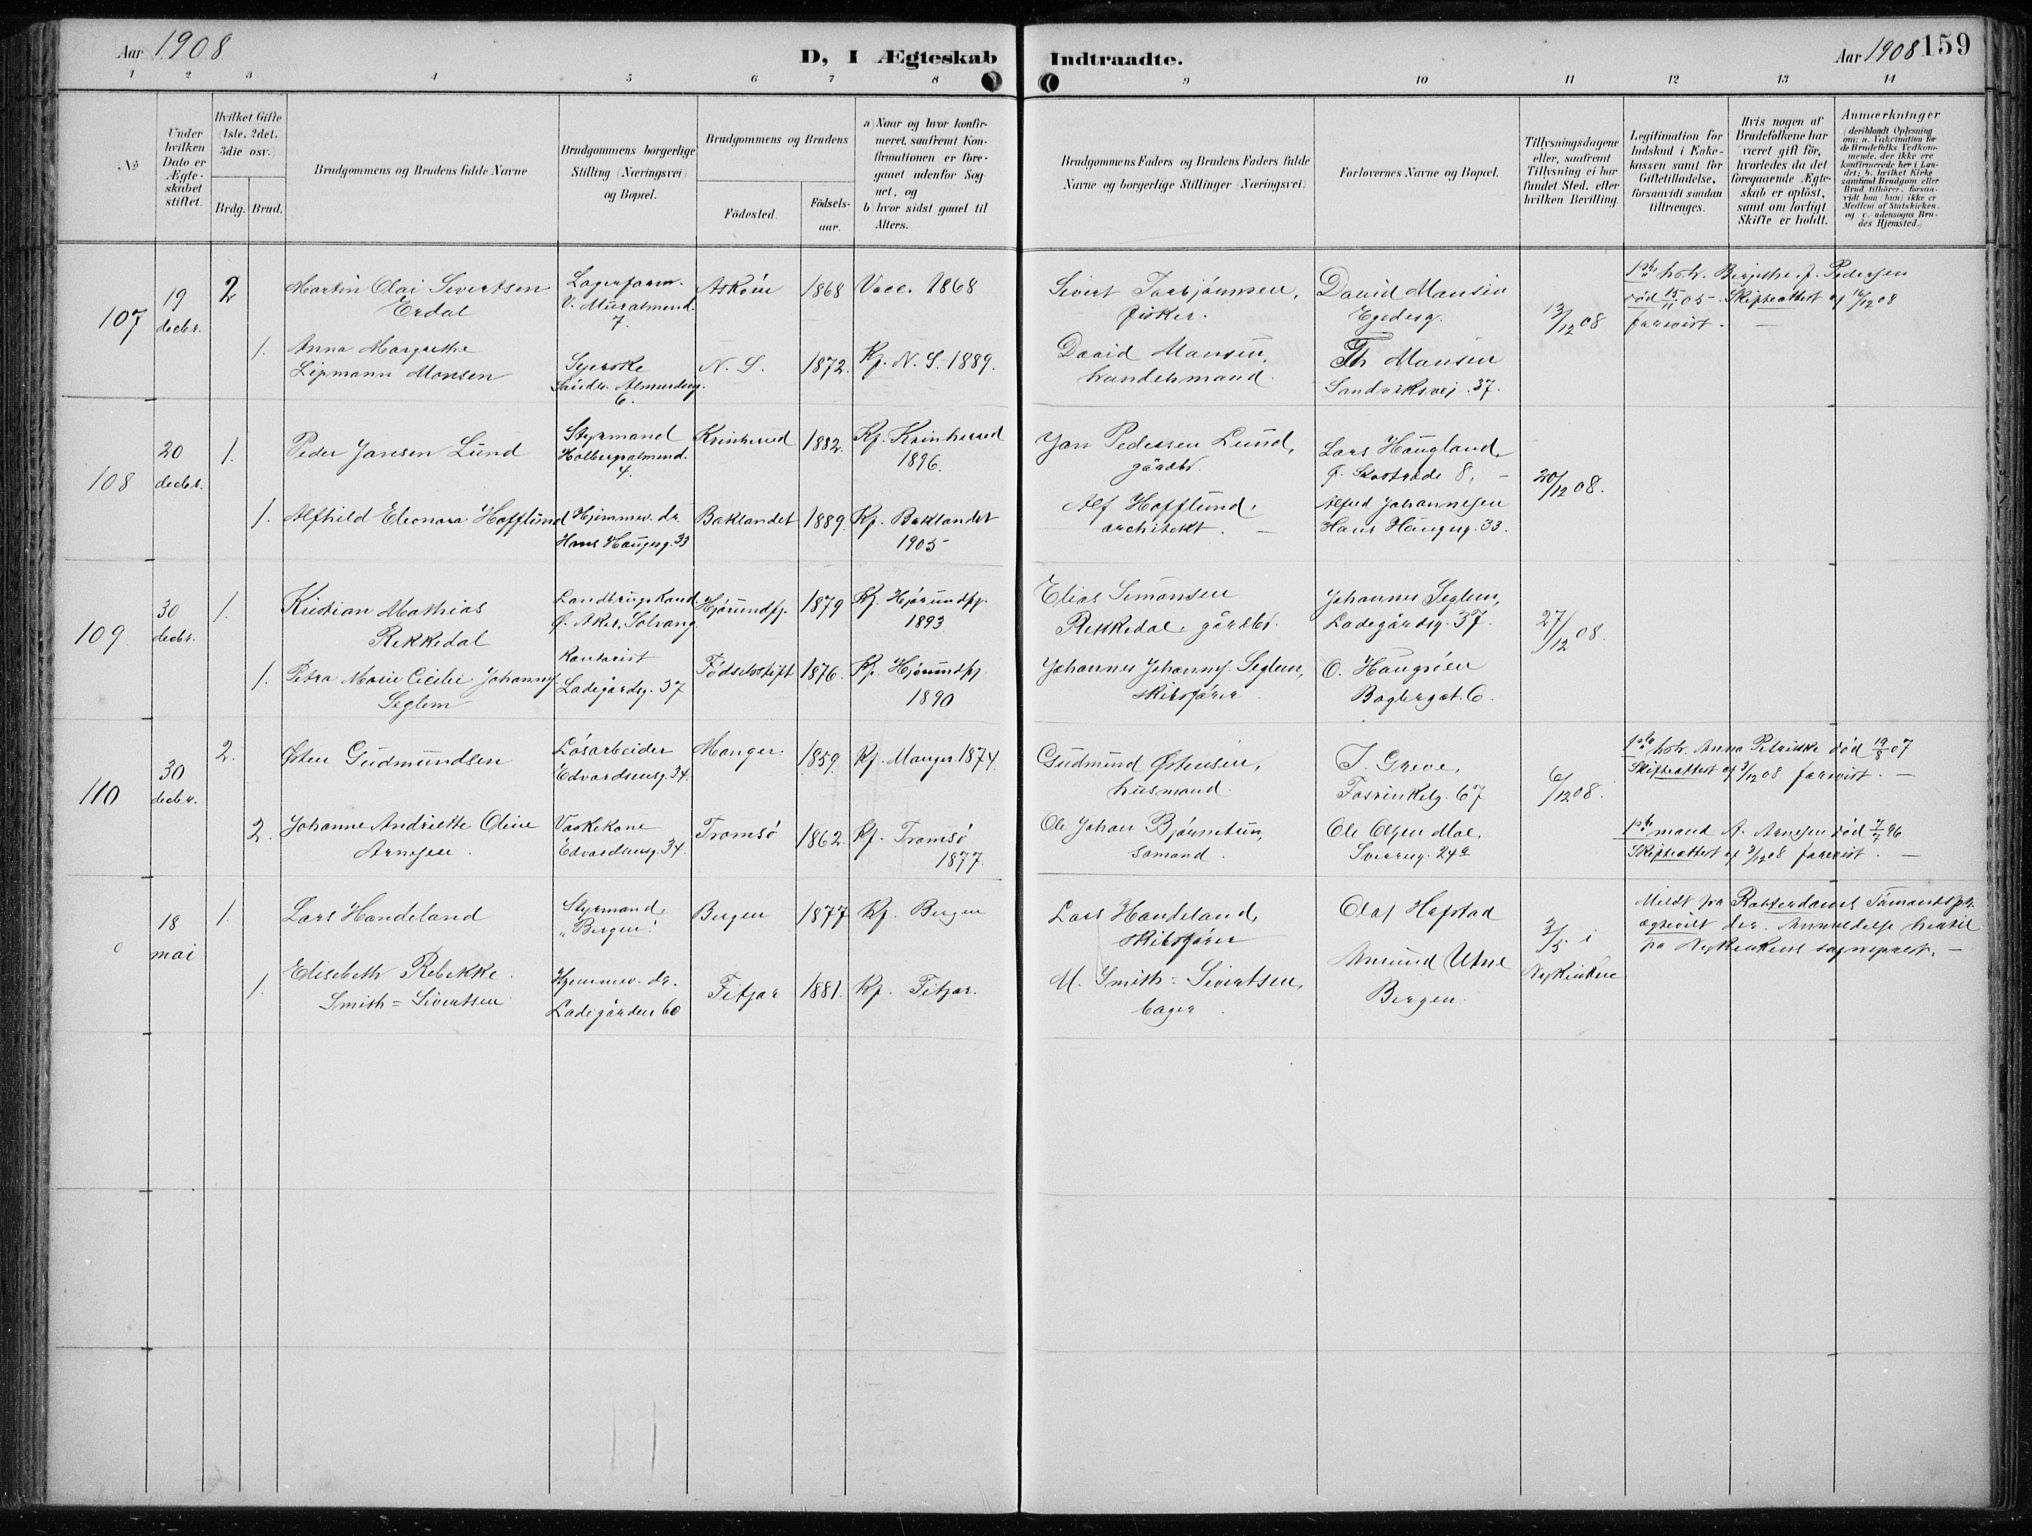 Aar 1908
D, I Ægteskab Indtraadte.
Aar 1908 159
1 2 3 4 5 6 7 8 9 10 11 12 13 14
No
Under hvilken Dato er Ægteskabet stiftet.
Hvilket Gifte (1ste, 2det, 3die osv.)
Brdg. Brud.
Brudgommens og Brudens fulde Navne
Brudgommens borgerlige Stilling (Næringsvei) og Bopæl.
Brudgommens og Brudens
Födested. Födselsaar.
a) Naar og hvor konfirmeret, saafremt Konfirmationen er foregaaet udenfor Sognet, og
b) hvor sidst gaaet til Alters.
Brudgommens Faders og Brudens Faders fulde Navne og borgerlige Stillinger (Næringsvei)
Forlovernes Navne og Bopæl.
Tillysningsdagene eller, saafremt Tillysning ei har fundet Sted, efter hvilken Bevilling.
Legitimation for Indskud i Enkekassen samt for Giftetilladelse, forsaavidt saadan tiltrænges.
Hvis nogen af Brudefolkene har været gift för, hvorledes da det foregaaende Ægteskab er oplöst, samt om lovligt Skifte er holdt.
Anmærkninger
(deriblandt Oplysning om: a. Vakcination for de Brudefolks Vedkommende, der ikke ere konfirmerede her i Landet; b. hvilket Kirkesamfund Brudgom eller Brud tilhörer, forsaavidt han (hun) ikke er Medlem af Statskirken, og c. udensogns Brudes Hjemsted.)
107
19 decbr.
2
Martin Olai Sivertsen Erdal
Lagerform.
V. Muralmend. 7
Askøen 1868 Vacc. 1868
Sivert Torbjørnsen, fisker.
David Monsen
Egedesg.
13/12 08
1ste hstr. Birgithe f. Pedersen
død 15/11 05. Skifteattest af 16/12 08
forevist. —
1.
Anna Margrethe
Lipmann Monsen
Syerske
Søndr. Almending. 6.
N. S. 1872. Kf. N. S. 1889.
David Monsen,
handelsmand.
Th Monsen
Sandviksvej. 37.
108
20 decbr.
1.
Peder Jansen Lund
Styrmand
Holbergsalmend. 4.
Kvinherred 1882. Kf. Kvinherred 1896.
Jan Pedersen Lund,
gårdbr.
Lars Haugland,
Ø. Skostræde 8,
20/12 08.
1.
Alfhild Eleonora Hofflund
Hjemmev. dr.
Hans Haugesg. 33
Baklandet 1889. Kf. Baklandet 1905
Alf Hofflund,
architekt. —
Alfred Johannesen
Hans Haugesg. 33.
109.
30 decbr.
1.
Kristian Mathias
Rekkedal
Landbrugskand
Ø. Aker, Solvang
Hjørundfj. 1879 Kf. Hjørundfj. 1893
Elias Simonsen
Rekkedal, gårdbr.
Johannes Seglem,
Ladegårdsg. 37.
27/12 08.
1.
Petra Marie Cicilie Johannes.
Seglem
Kontorist
Ladegårdsg. 37
Fødselsstift 1876. Kf. Hjørundfj. 1890
Johannes Johannes. Seglem,
skibsfører
O. Haugsøen
Baglergat. 6.
110
30 decbr.
2.
Østen Gudmundsen
Løsarbeider
Edvardsensg. 34.
Manger. 1859. Kf. Manger. 1874.
Gudmund Østensen,
husmand.
J. Greve,
Formsvinkelg. 67
6/12 08.
1ste hstr. Anna Petrikke død 19/8 07
Skifteattest af 3/12 08 forevist. —
2.
Johanne Andriette Oline
Arnesen.
Vaskekone
Edvardsensg. 34.
Tromsø 1862. Kf. Tromsø 1877.
Ole Johan Bjørnetun,
sømand.
Ole Olsen Moe,
Sverresg. 24a
1ste mand A. Arnesen død 7/7 96
Skifteattest af 3/12 08 forevist. —
18 mai
1.
Lars Handeland
Styrmand,
„Bergen“
Bergen 1877 Kf. Bergen
Lars Handeland,
skibsfører
Olaf Hafstad
3/5 i
Nykirken
Meldt fra Rotterdams Sømandspr.
ægteviet der. Anmeldelse hertil
fra Nykirkens sogneprest. —
1.
Elisebeth Rebekke
Smith = Sivertsen
Hjemmev. dr.
Ladegården 60
Fitjar 1881. Kf. Fitjar.
M. Smith = Sivertsen,
bager.
Amund Utne
Bergen.